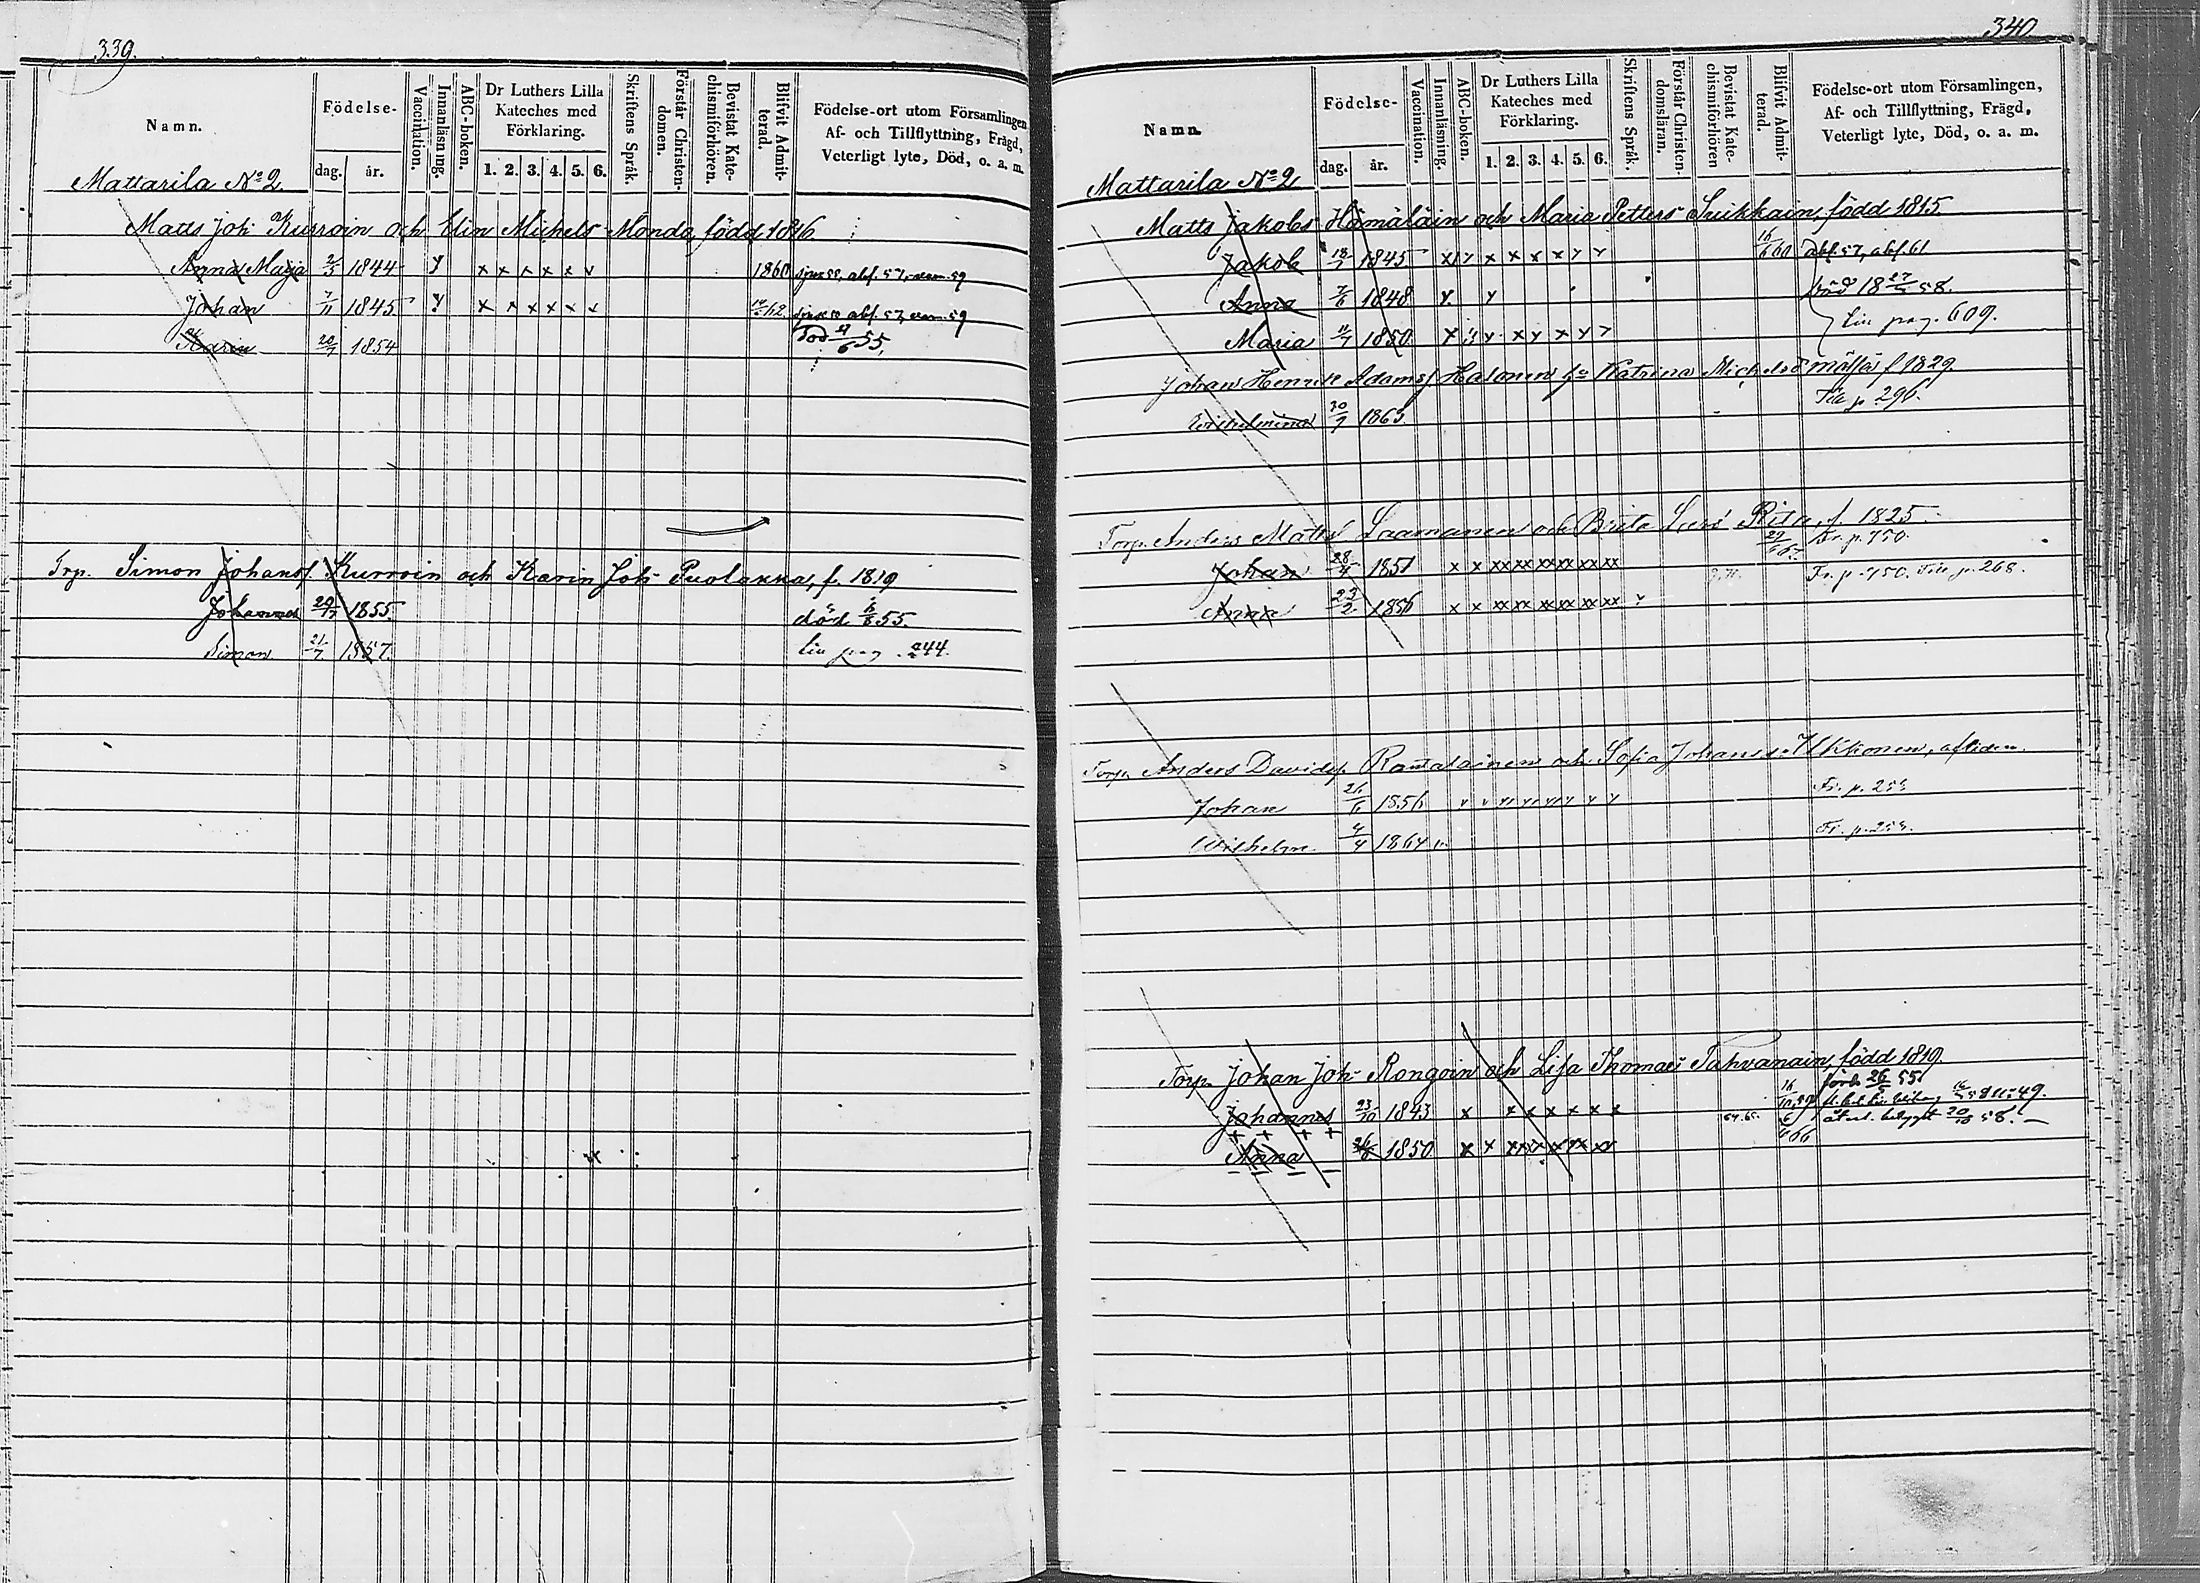 339.
Namn.
Födelse-
dag. år.
Vaccination.
Innanläsning.
ABC-boken.
Dr Luthers Lilla Kateches med Förklaring.
1. 2. 3. 4. 5. 6.
Skriftens Språk.
Förstår Christendomen.
Bevistat Katechismiförhören.
Blifvit Admitterad.
Födelse-ort utom Församlingen,
Af- och Tillflyttning, Frägd,
Veterligt lyte, Död, o. a. m.
Mattarila No 2
Matts Joh: Kurroin och Elin Michels Monda, född 1826.
Anna Maja 2/5 1844 y x x x x x v 1860 abf. 57, 59
Johan 7/11 1845 y x x x x x x 62 abf. 57, 59
Karin 20/7 1854 död 4/6 55,
Trp. Simon Johansf. Kurroin och Karin Joh: Puolakka, f. 1819
Johannes 29/7 1855. död 6/8 55.
Simon 21/7 1857. Liu pag. 244.
340
Namn.
Födelse-
dag. år.
Vaccination.
Innanläsning.
ABC-boken.
Dr Luthers Lilla Kateches med Förklaring.
1. 2. 3. 4. 5. 6.
Skriftens Språk.
Förstår Christendomsläran.
Bevistat Katechismiförhören
Blifvit Admitterad.
Födelse-ort utom Församlingen,
Af- och Tillflyttning, Frägd,
Veterligt lyte, Död, o. a. m.
Mattarila No 2
Matts Jakobs Hämäläin och Maria Petters Suikkain, född 1815.
Jakob 18/7 1845 x y x x x x y y 16/6 60 abf. 57, abf. 61
Anna 7/6 1848 y y död 18 27/ 58.
Maria 11/7 1850 x y x y x y y Liu pag. 609.
Johan Henrik Adamsf Halonen Katrina Michelsd f 1829
Wilhelmina 30/9 1863. Till p. 296.
Torp. Anders Matts Laamanen och Brita Lars Rita, f. 1825.
Johan 28/4 1851 x x xx xx xx xx xx xx Fr. p. 450.
Anna 23/2 1856 x x xx xx xx xx xx xx Fr. p. 450. Till p. 268.
Torp. Anders Davidsf. Rantalainen och Sofia Johansd. Ukkonen, afliden.
Johan 26/6 1856 Fr. p.
Wilhelm 4/4 1864 Fr. p.
Torp. Johan Joh: Rongoin och Lisa Thomas Tahvanain, född 1819.
Johannes 23/10 1843 x x x x x x x 64. 65. 26 55
20/10 58.
Anna 26/6 1850 x x xx xx xx xx 66